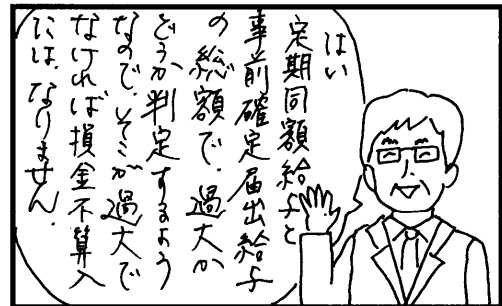 はい
定期同額給与と
事前確定届出給与
の総額で、過大か
どうか判定するよう
なので、そこが過大で
なければ損金不算入
には、なりません。